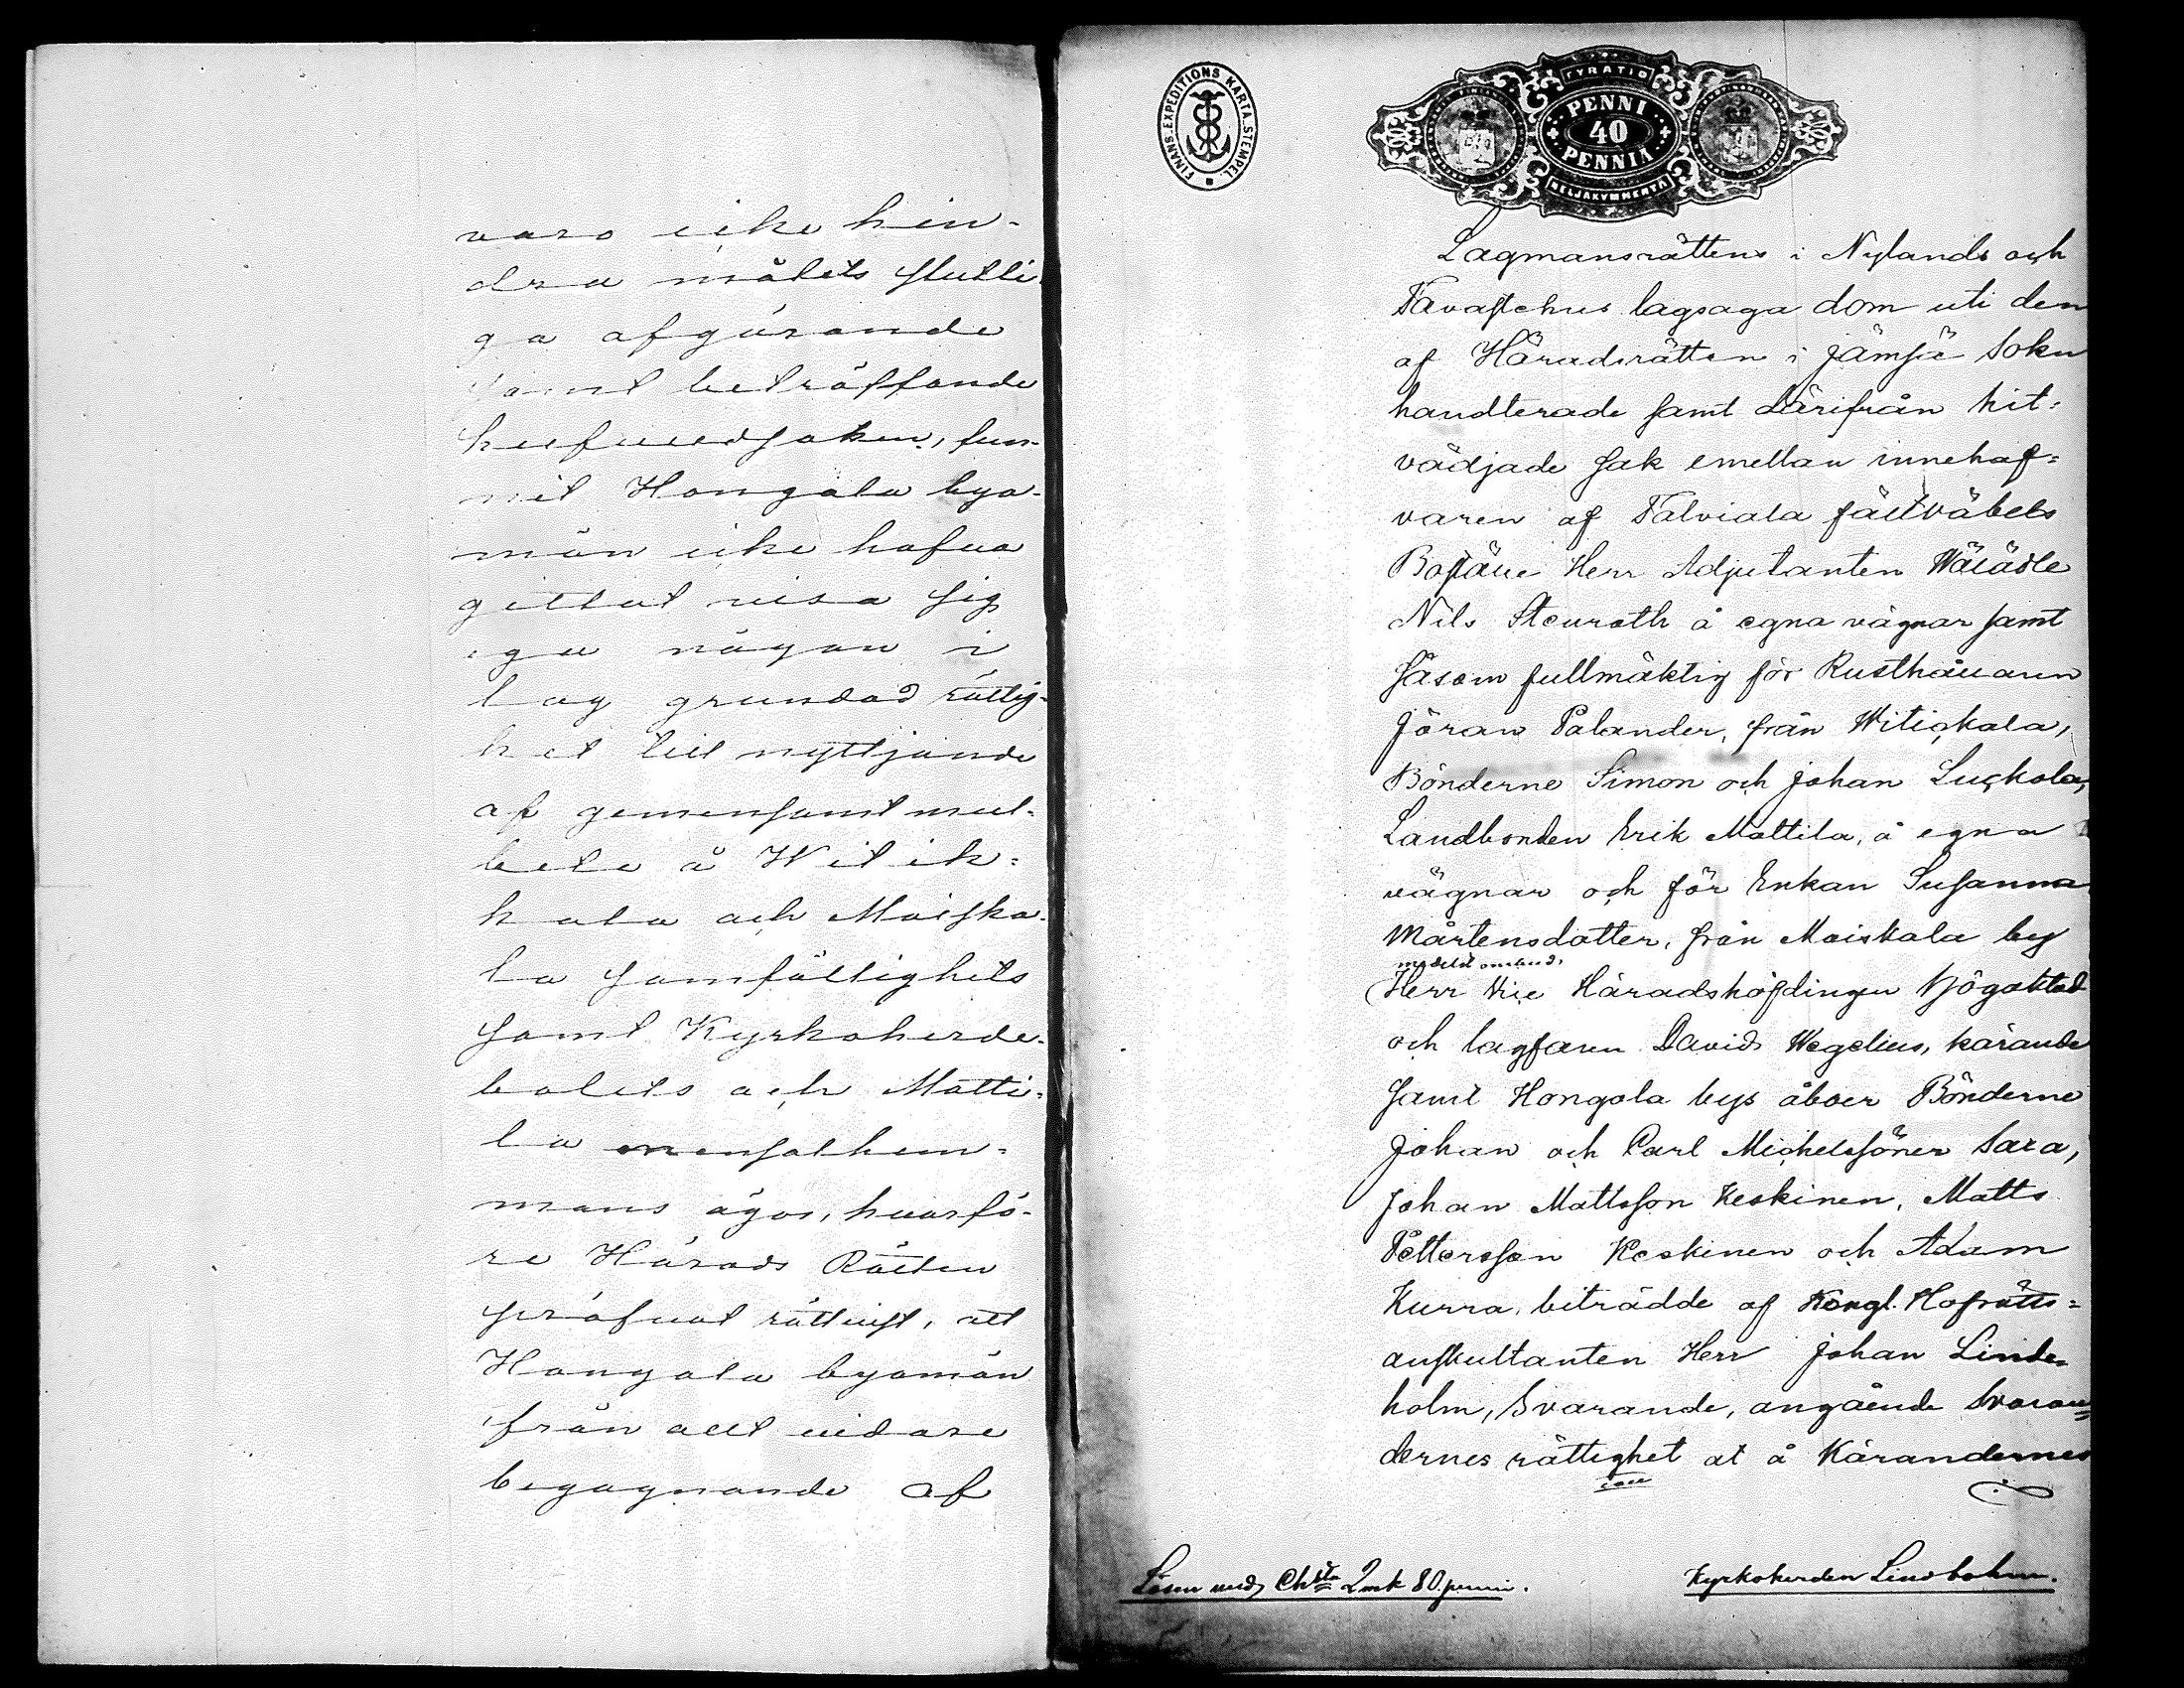 vara icke hin-
dra målets slutli-
ga afgörande
samt beträffande
hufvudsaken, fun-
nit Hongola bya-
män icke hafva
gittat visa sig
ega någon i
lag grundad rättig-
het till nyttjande
af gemensamt mul-
bete å Witik-
kala och Maiska-
la samfällighets
samt Kyrkoherde-
bolets och Matti-
la mensalhem-
mans ägor, hvarfö-
re Härads Rätten
pröfvat rättvist, att
Hongola byamän
från allt vidare
begagnande af
FINANS. EXPEDITIONS KARTA. STEMPEL
FYRATIO
PENNI
40
PENNIÄ
NELJÄKYMMENTÄ
Lagmansrättens i Nylands och
Tavastehus lagsaga dom uti den
af Häradsrätten i Jämsä Sokn
handterade samt därifrån hit=
vädjade sak emellan innehaf=
varen af Talviala fältväbels
Boställe Herr Adjutanten Wälädle
Nils Stenroth å egna vägnar samt
såsom fullmäktig för Rusthållaren
Jöran Palander, från Witickala,
Bönderne Simon och Johan Luckola,
Landbonden Erik Mattila, å egna
vägnar och för Enkan Susanna
Mårtensdotter, från Maiskala by
medelst ombud,
Herr Vice Häradshöfdingen Högaktad
och lagfaren David Wegelius, kärande
samt Hongola bys åboer Bönderne
Johan och Carl Michelssöner Sara,
Johan Mattsson Keskinen, Matts
Pettersson Keskinen och Adam
Kurra, biträdde af Kongl. Hofrätts=
auskultanten Herr Johan Linde=
holm, Svarande, angående Svaran=
dernes rättighet at å Kärandernes
Lösen med Ch:sta 2 mk 80 penni.
Kyrkoherden Lindbohm.